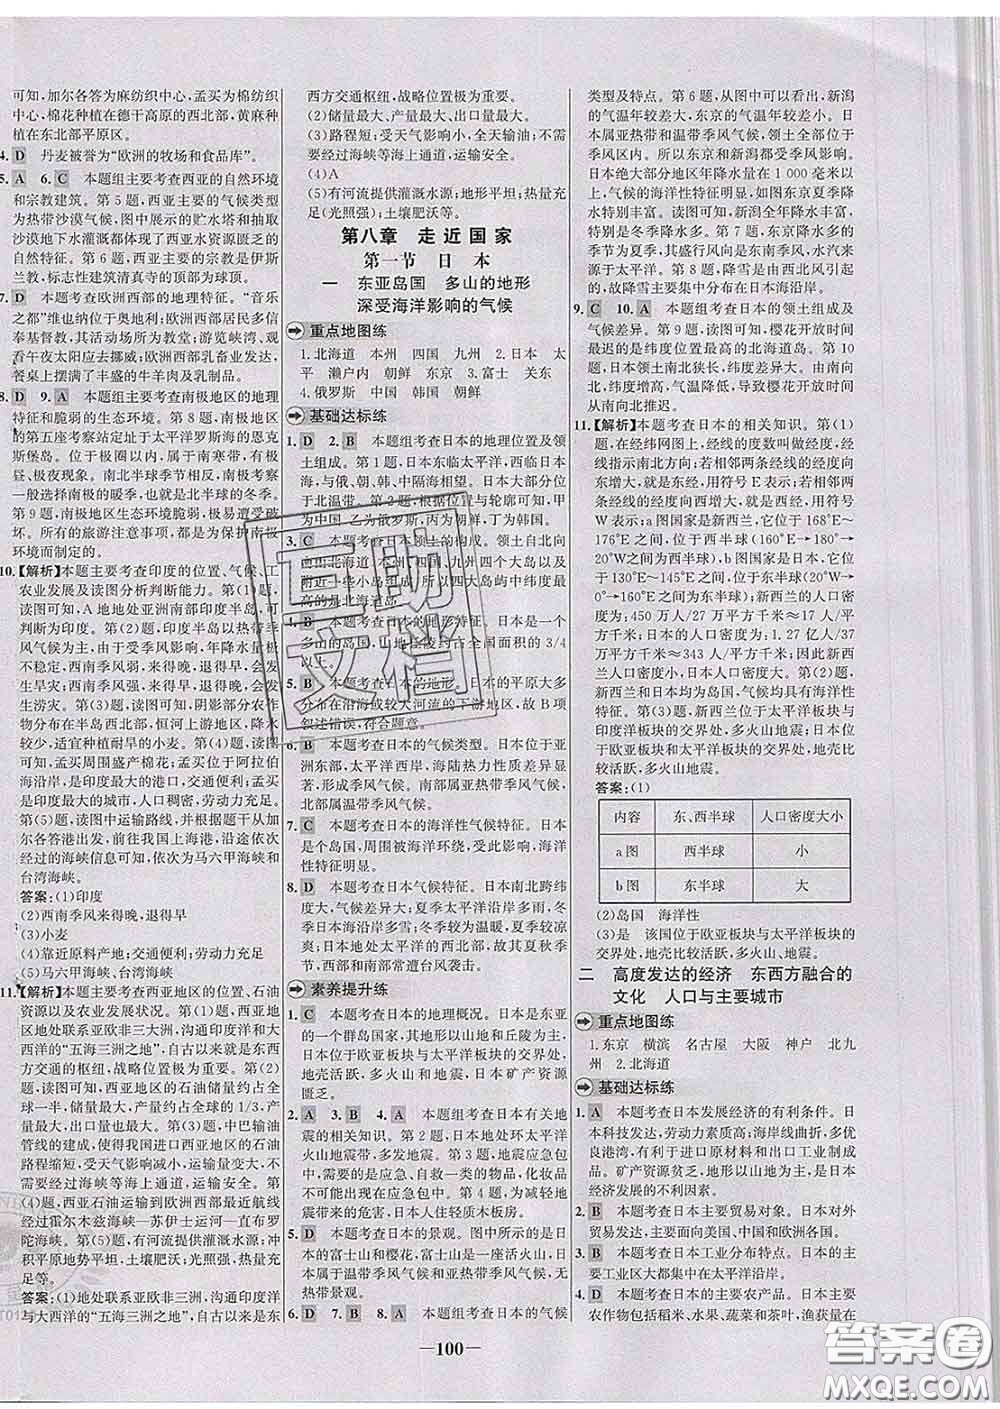 可知，加尔各答为麻纺织中心，孟买为棉纺织
中心，棉花种植在德干高原的西北部，黄麻种
植在东北部平原区。
4. D 丹麦被誉为“欧洲的牧场和食品库”。
5. A 6. C 本题组主要考查西亚的自然环境
和宗教建筑。第5题，西亚主要的气候类型
为热带沙漠气候，图中展示的贮水塔和抽取
沙漠地下水灌溉都体现了西亚水资源匮乏的
自然特征。第6题，西亚主要的宗教是伊斯
兰教，标志性建筑清真寺的顶部为球顶。
7. D 本题考查欧洲西部的地理特征。“音乐
之都”维也纳位于奥地利；欧洲西部居民多信
奉基督教，其活动场所为教堂；游览峡湾、观
看午夜太阳应去挪威；欧洲西部乳畜业发达，
餐桌上摆满了丰盛的牛羊肉及乳制品。
8. D 9. A 本题组主要考查南极地区的地理
特征和脆弱的生态环境。第8题，南极地区
的第五座考察站定址于太平洋罗斯海的恩克
斯堡岛。位于极圈以内，属于南寒带，有极
昼、极夜现象。南北半球季节相反，南极考察
一般选择南极的暖季，也就是北半球的冬季。
第9题，南极地区生态环境脆弱，极易遭受破
坏。所有的旅游注意事项，都是为保护南极
环境而制定的。
10.【解析】本题主要考查印度的位置、气候、工
农业发展及读图分析判断能力。第(1)题，
读图可知，A地地处亚洲南部印度半岛，可
判断为印度。第(2)题，印度半岛以热带季
风气候为主，由于受季风影响，年降水量极
不稳定，西南季风弱、来得晚、退得早，会发
生旱灾；西南季风强，来得早，退得晚，会发
生涝灾。第(3)题，阴影部分表示的农
作物分布在半岛西北部，恒河上游地区，降水
较少，适宜种植耐旱的小麦。第(4)题，读图
可知，孟买周围盛产棉花；孟买位于阿拉伯
海沿岸，是印度最大的港口，交通便利；孟买
是印度最大的城市，人口稠密，劳动力充足。
第(5)题，读图中运输路线，可以看出从加
尔各答港出发，前往我国上海港，沿途依次
经过的海峡信息可知，依次为马六甲海峡和
台湾海峡。
答案：(1)印度
(2)西南季风来得晚，退得早
(3)小麦
(4)靠近原料产地；交通便利；劳动力充足
(5)马六甲海峡、台湾海峡
11.【解析】本题主要考查西亚地区的位置、石油
资源以及农业发展状况。第(1)题，西亚地
区地处联系亚欧非三大洲，沟通印度洋和大
西洋的“五海三洲之地”，自古以来就是东西
方交通的枢纽，战略位置重要。第(2)题，
读图可知，西亚地区的石油储量约占全球
一半，储量最大，产量约占全球的1/3，产量
最大，出口量也最大。第(3)题，中巴输油
管线的建成，使得我国进口西亚地区的石油
路程缩短，安全性大大提高。第(4)题，读
图可知，西亚石油运输到欧洲西部最近航线
经过霍尔木兹海峡—苏伊士运河—直布罗
陀海峡。第(5)题，有河流提供灌溉水源；冲
积平原地势平坦，土壤肥沃；热量充足。
答案：(1)地处联系亚欧非三洲，沟通印度洋
与大西洋的“五海三洲之地”，自古以来是东
西方交通枢纽，战略位置极为重要。
(2)储量最大、产量最大、出口量最大。
(3)路程短；受天气影响小，全天输油；不需
要经过海峡等海上通道，运输安全。
(4)A
(5)有河流提供灌溉水源；地形平坦；热量充
足(光照强)；土壤肥沃等。
第八章 走近国家
第一节 日本
一 东亚岛国 多山的地形
深受海洋影响的气候
重点地图练
1.北海道 本州 四国 九州 2.日本 太
平 濑户内 朝鲜 东京 3.富士 关东
4.俄罗斯 中国 韩国 朝鲜
基础达标练
1. D 2. B 本题组考查日本的地理位置及领
土组成。第1题，日本东临太平洋，西临日本
海，与俄、韩、朝、中隔海相望。日本大部分位
于北温带。第2题，根据位置与轮廓可知，甲
为中国，乙为俄罗斯，丙为韩国，丁为朝鲜。
3. C 本题考查日本的构成。日本的领土为
北海道、本州、四国、九州四个大岛以及附近
的一些小岛组成。其中四个大岛以本州岛面积
最高的是本州岛。
4. B 本题考查日本的地形特征。日本是一个
多山的岛国，山地丘陵约占全国总面积的3/4
以上。
5. B 本题考查日本的地形。日本的平原大多
分布在沿海或较大河流的下游地区，故B项
叙述错误，符合题意。
6. B 本题考查日本的气候类型。日本位于亚
洲东部，太平洋西岸，海陆热力性质差异显
著，形成季风气候。南部属亚热带季风气候，
北部属温带季风气候。
7. C 本题考查日本的海洋性气候特征。日本
是个岛国，周围被海洋环绕，受海洋影响，海洋
性特征明显。
8. D 本题考查日本气候特征。日本南北跨纬
度大，南北气候差异大。日本受海洋影响大，
与同纬度大陆相比，冬季较为温暖，夏季较为
凉爽；日本地处太平洋的西北部，故其中部、
南部和西部常遭台风袭击。
素养提升练
1. C 本题考查日本的地理概况。日本是东亚
的一个群岛国家，其地形以山地和丘陵为主；
由于位于欧亚板块与太平洋板块的交界处，
地壳活跃，多火山和地震，日本矿产资源
匮乏。
2. A 3. B 4. A 本题组考查日本有关地
震的相关知识。第2题，日本地处环太平洋
火山地震带，多发地震。第3题，地震应急包
中应是急救、自救一类的物品，化妆品
不可能在应急包中。第4题，为了减少地震
带来的危害，日本人居住轻质木板房。
5. D 本题考查日本的景观。图中所示的是日
本的富士山和樱花，富士山是一座活火山，主
要特征是受温带季风气候影响，没有
热带景观。
6. D 7. B 8. A 本题组考查日本的气候
类型及特点。第6题，从图中可以看出，新潟
的气温年较差大，东京的气温年较差小。日
本属亚热带和温带季风气候，领土全部位于
季风区内。所以东京和新潟都是季风气候。
日本绝大部分地区年降水量在1 000毫米以
上，气候的海洋性特征明显。如图东京夏季降
水特别丰富，冬季较少；新潟全年降水较多，
尤其冬季降水更多。第7题，东京夏季降水
丰富，盛行风向是东南季风，水汽来
源于太平洋。第8题，冬季，由于西北风影
响，降雪主要集中分布在日本海沿岸。
9. C 10. A 本题组考查日本的领土组成及
气候差异。第9题，读图可知，樱花开放时间
最迟的是纬度位置最高的北海道岛。第10
题，日本领土南北狭长，南北纬度差异大，从
南到北，气温降低，导致樱花开放时间
从南向北推迟。
11.【解析】本题考查日本的相关知识。第(1)
题，在经纬网图上，经线的度数叫做经度，经
线指示南北方向；若相邻两条经线的经度向
东增大，就是东经，用符号E表示；若相邻两
条经线的经度向西增大，就是西经，用符号
W表示；a图国家是新西兰，它位于168°E~
176°E之间，属于西半球(160°E→180°→
20°W之间为西半球)，b图国家是日本，它
位于130°E~145°E之间，属于东半球(20°W→
0°→160°E之间为东半球)；新西兰的人口密
度为：450万人/27万平方千米≈17人/平
方千米；日本的人口密度为：1.27亿人/37
万平方千米≈343人/平方千米，所以新西
兰人口密度小，日本人口密度大。第(2)题，
新西兰和日本均为岛国，气候均具有海洋性
特征。第(3)题，新西兰位于太平洋板块与
印度洋板块的交界处，多火山地震；日本位
于欧亚板块和太平洋板块的交界处，地壳比
较活跃，多火山地震。
答案：(1)
内容 东、西半球 人口密度大小
a图 西半球 小
b图 东半球 大
(2)岛国 海洋性
(3)是 该国位于欧亚板块与太平洋板块的交界
处，地壳比较活跃，多火山地震。
二 高度发达的经济 东西方融合的
文化 人口与主要城市
重点地图练
1.东京 横滨 名古屋 大阪 神户 北九
州 2.北海道
基础达标练
1. A 本题考查日本发展经济的有利条件。日
本科技发达，劳动力素质高；海岸线曲折，多优
良港湾，有利于进口原材料和出口工业制成
品。矿产资源贫乏，地形以山地为主，是日本
经济发展的不利因素。
2. B 本题考查日本主要贸易对象。日本对外
贸易发达，主要面向美国、中国和欧洲各国。
3. B 本题考查日本工业分布特点。日本的主
要工业区大都集中在太平洋沿岸。
4. D 本题考查日本的主要农产品。日本主要
农作物包括稻米、水果、蔬菜和茶叶，渔获量在
—100—
互助
文档
答案圈
MXQE.COM